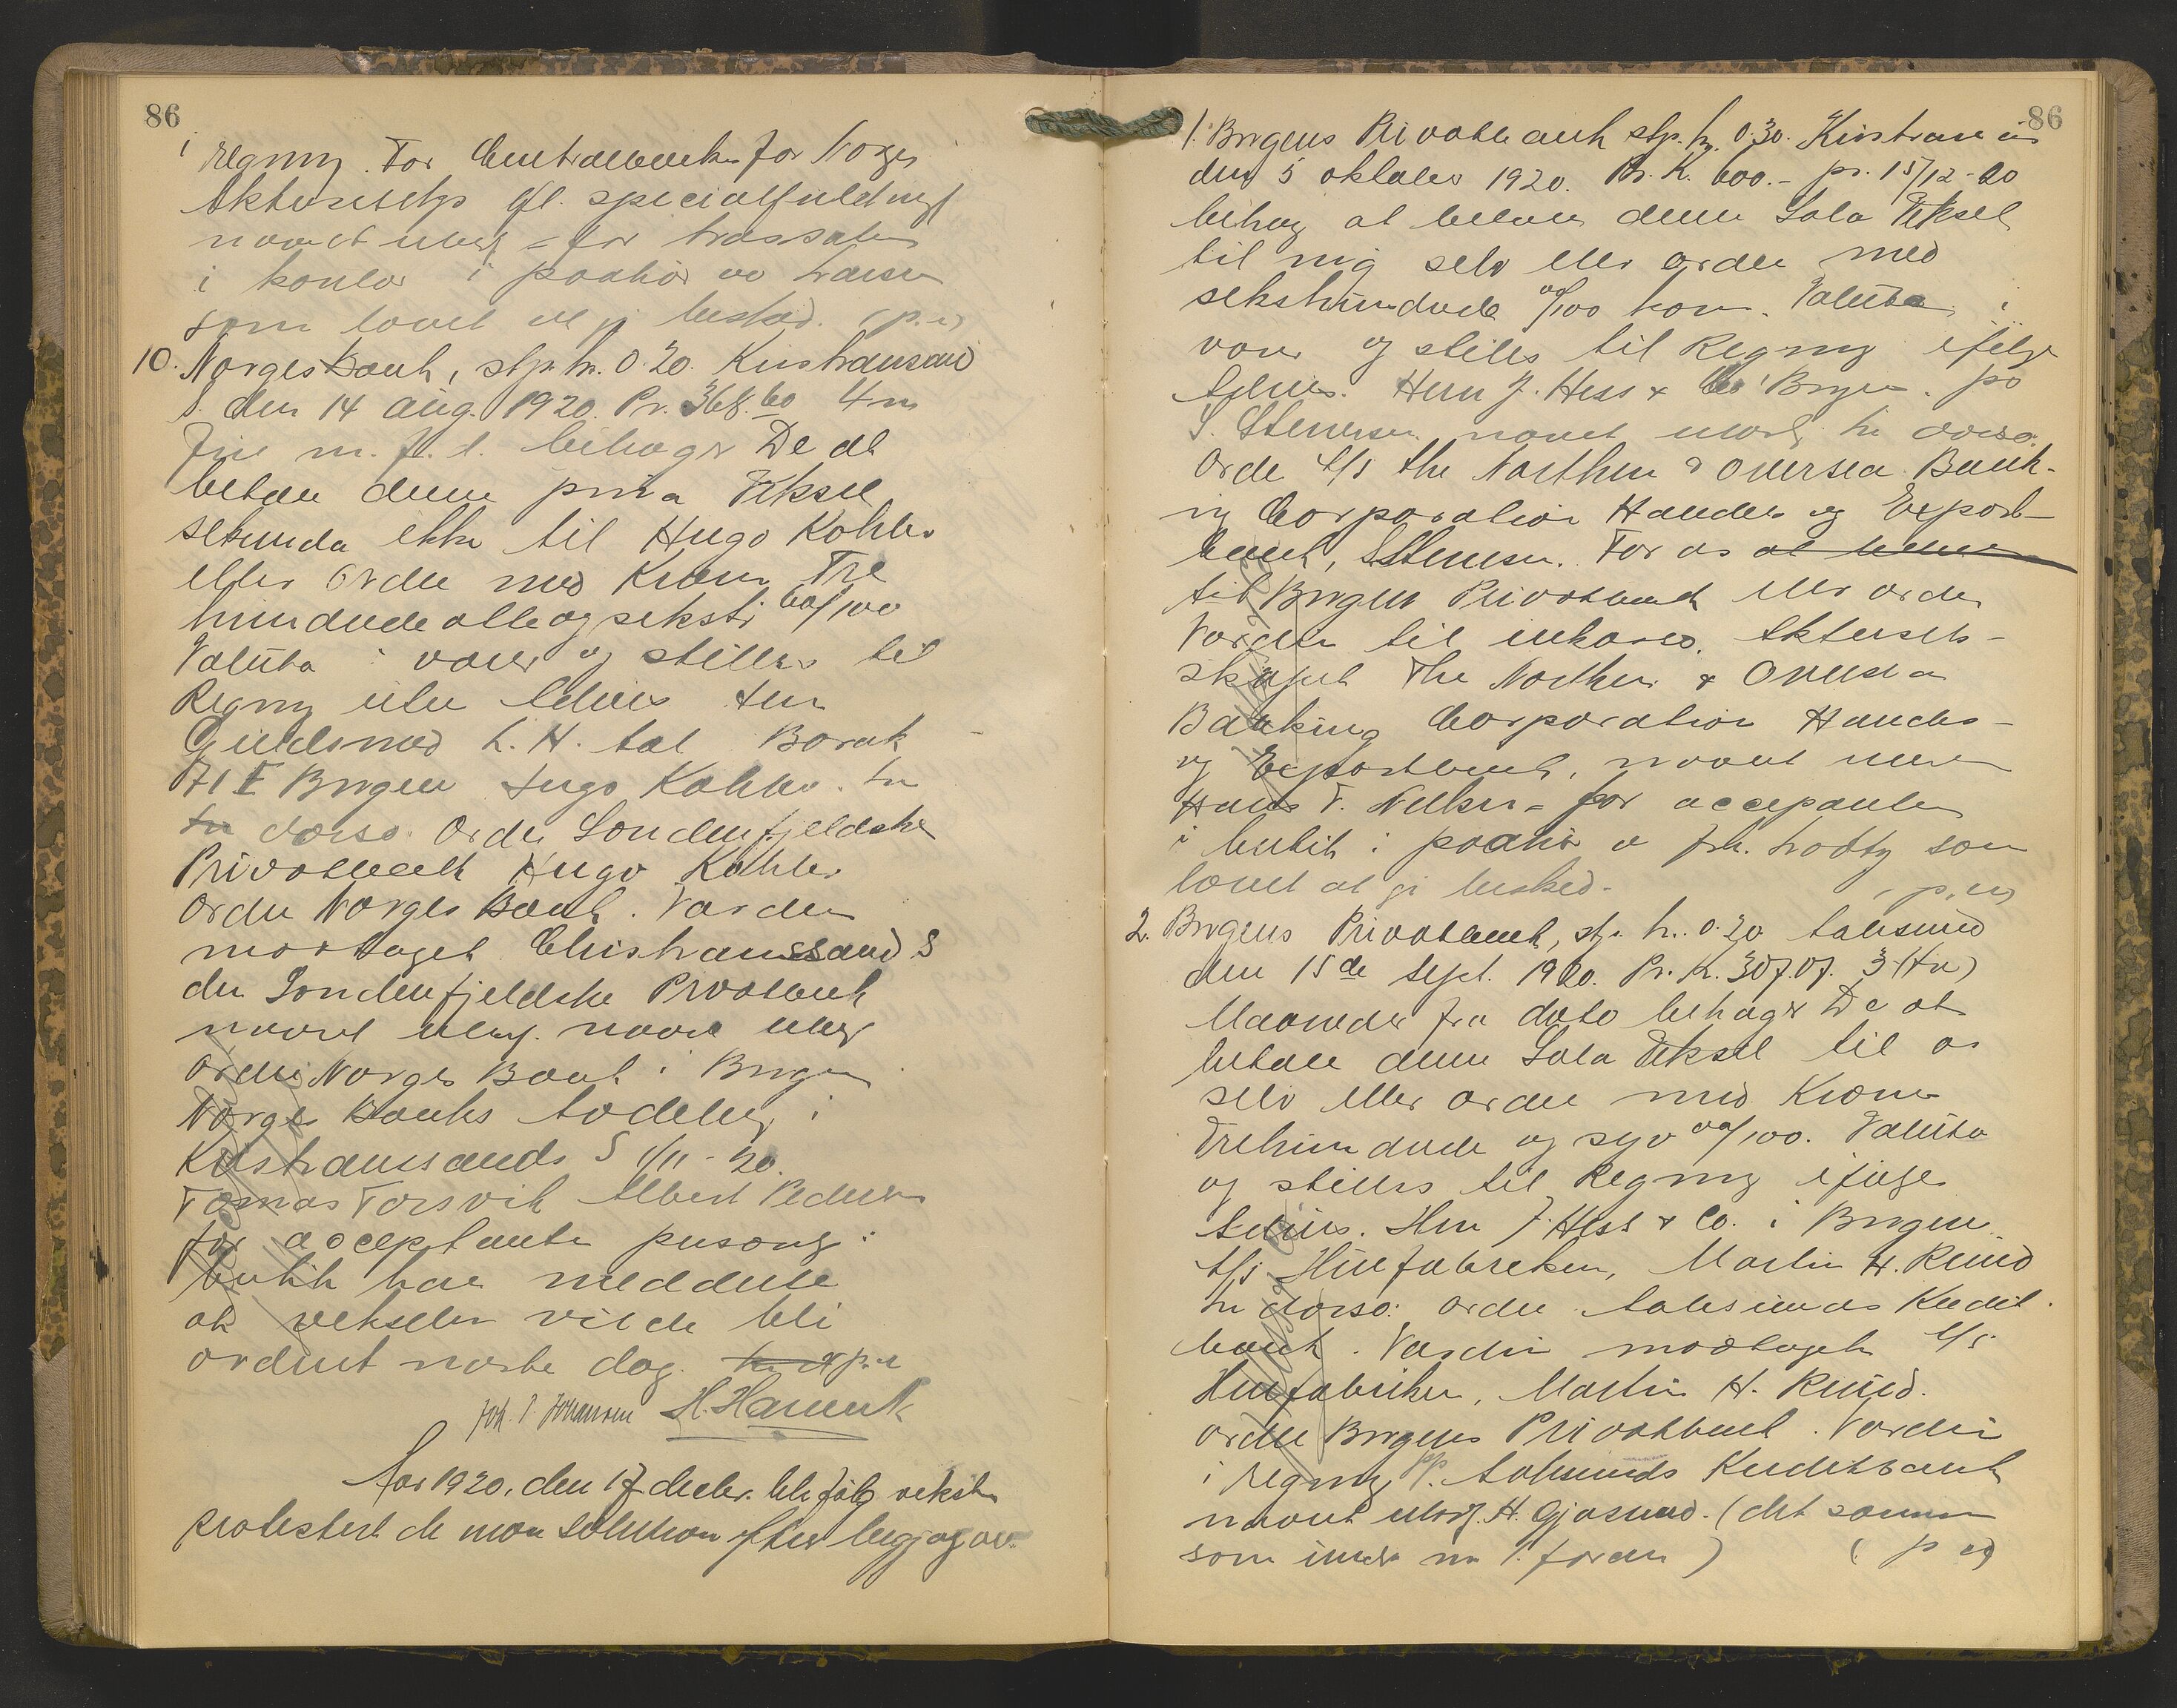 86
i Regning. For Centralbanken for Norge
Aktieselskp ifl. specialfuldmgt
navnet ulæsel. - for trassaten
i kontor i paahør av
som lovet at gi besked. (p.a)
10. Norges Bank, stp. kr. 0.20. Kristiansand
S. den 14 aug. 1920. Pr. 368.60 4 m
Fire m. f. d. behager De at
betale denne prima Veksel,
sekunda ikke til Hugo Köhler
eller Ordre med Kroner Tre
hundrede otte og seksti 60/100
Valuta i varer og stilles til
Regning uten Advis Herr
Guldsmed L. H. Aal
71 I Bergen Hugo Köhler. In
In dorso. Ordre Søndenfjeldske
Privatbank Hugo Köhler
Ordre Norges Bank. Værdien
mottaget Christianssand S
den Søndenfjeldske Privatbank
navnet ulæsl. navnet ulæsl
Ordre Norges Bank i Bergen
Norges Banks Avdeling i
Kristianssands S 1/11 - 20.
Tomas Torsvik Albert Pedersen
for acceptanten personlig i
butik han meddelte
at vekselen vilde bli
ordnet næste dag. p.a
Joh. P. Johannesen H. Hamre
Aar 1920, den 17 decbr. ble følg veksler
protestert de non solution efter begjæg av:
86
1. Bergens Privatbank stp. kr. 0.30. Kristiansund
den 5 oktober 1920. Pr. K. 600.- pr. 15/12-20
behag at betale denne Sola Veksel
til mig selv eller ordre med
sekshundrede 00/100 kron. Valuta i
varer og stilles til Regning ifølge
Advis. Herr J. Hess & Co Bergen. pr
S. Stenersen navnet ulæsl. In dorso.
Ordre A/S the Northern & Oversea Bank-
ing Corporation Handels og Export-
bank, S Stenersen. For os at
til Bergens Privatbank eller ordre
Værdien til inkasso. Aktiesel-
skapet The Northern & Oversea
Banking Corporation Handels-
og Exportbank, navnet ulæsl
Hans T. - for acceptanten
i butik i paahør av frk. som
lovet at gi besked. (p.a)
2. Bergens Privatbank, stp. kr. 0.20 Aalesund
den 15de Sept. 1920. Pr. K. 307.07. 3 (tre)
Maaneder fra dato behager De at
betale denne Sola Veksel til os
selv eller ordre med Kroner
Trehundrede og syv 00/100. Valuta
og stilles til Regning ifølge
Advis. Herr J. Hess & Co. i Bergen.
A/S Huefabriken, Martin H. Ruud
In dorso: Ordre Aalesunds Kredit
bank. Værdien modtaget A/S
Huefabriken, Martin H. Ruud.
Ordre Bergens Privatbank. Værdien
i regning pp. Aalesunds Kreditbank
navnet ulæsl. H. Gjøsund. (det samme
som under no 1. foran) (p a)